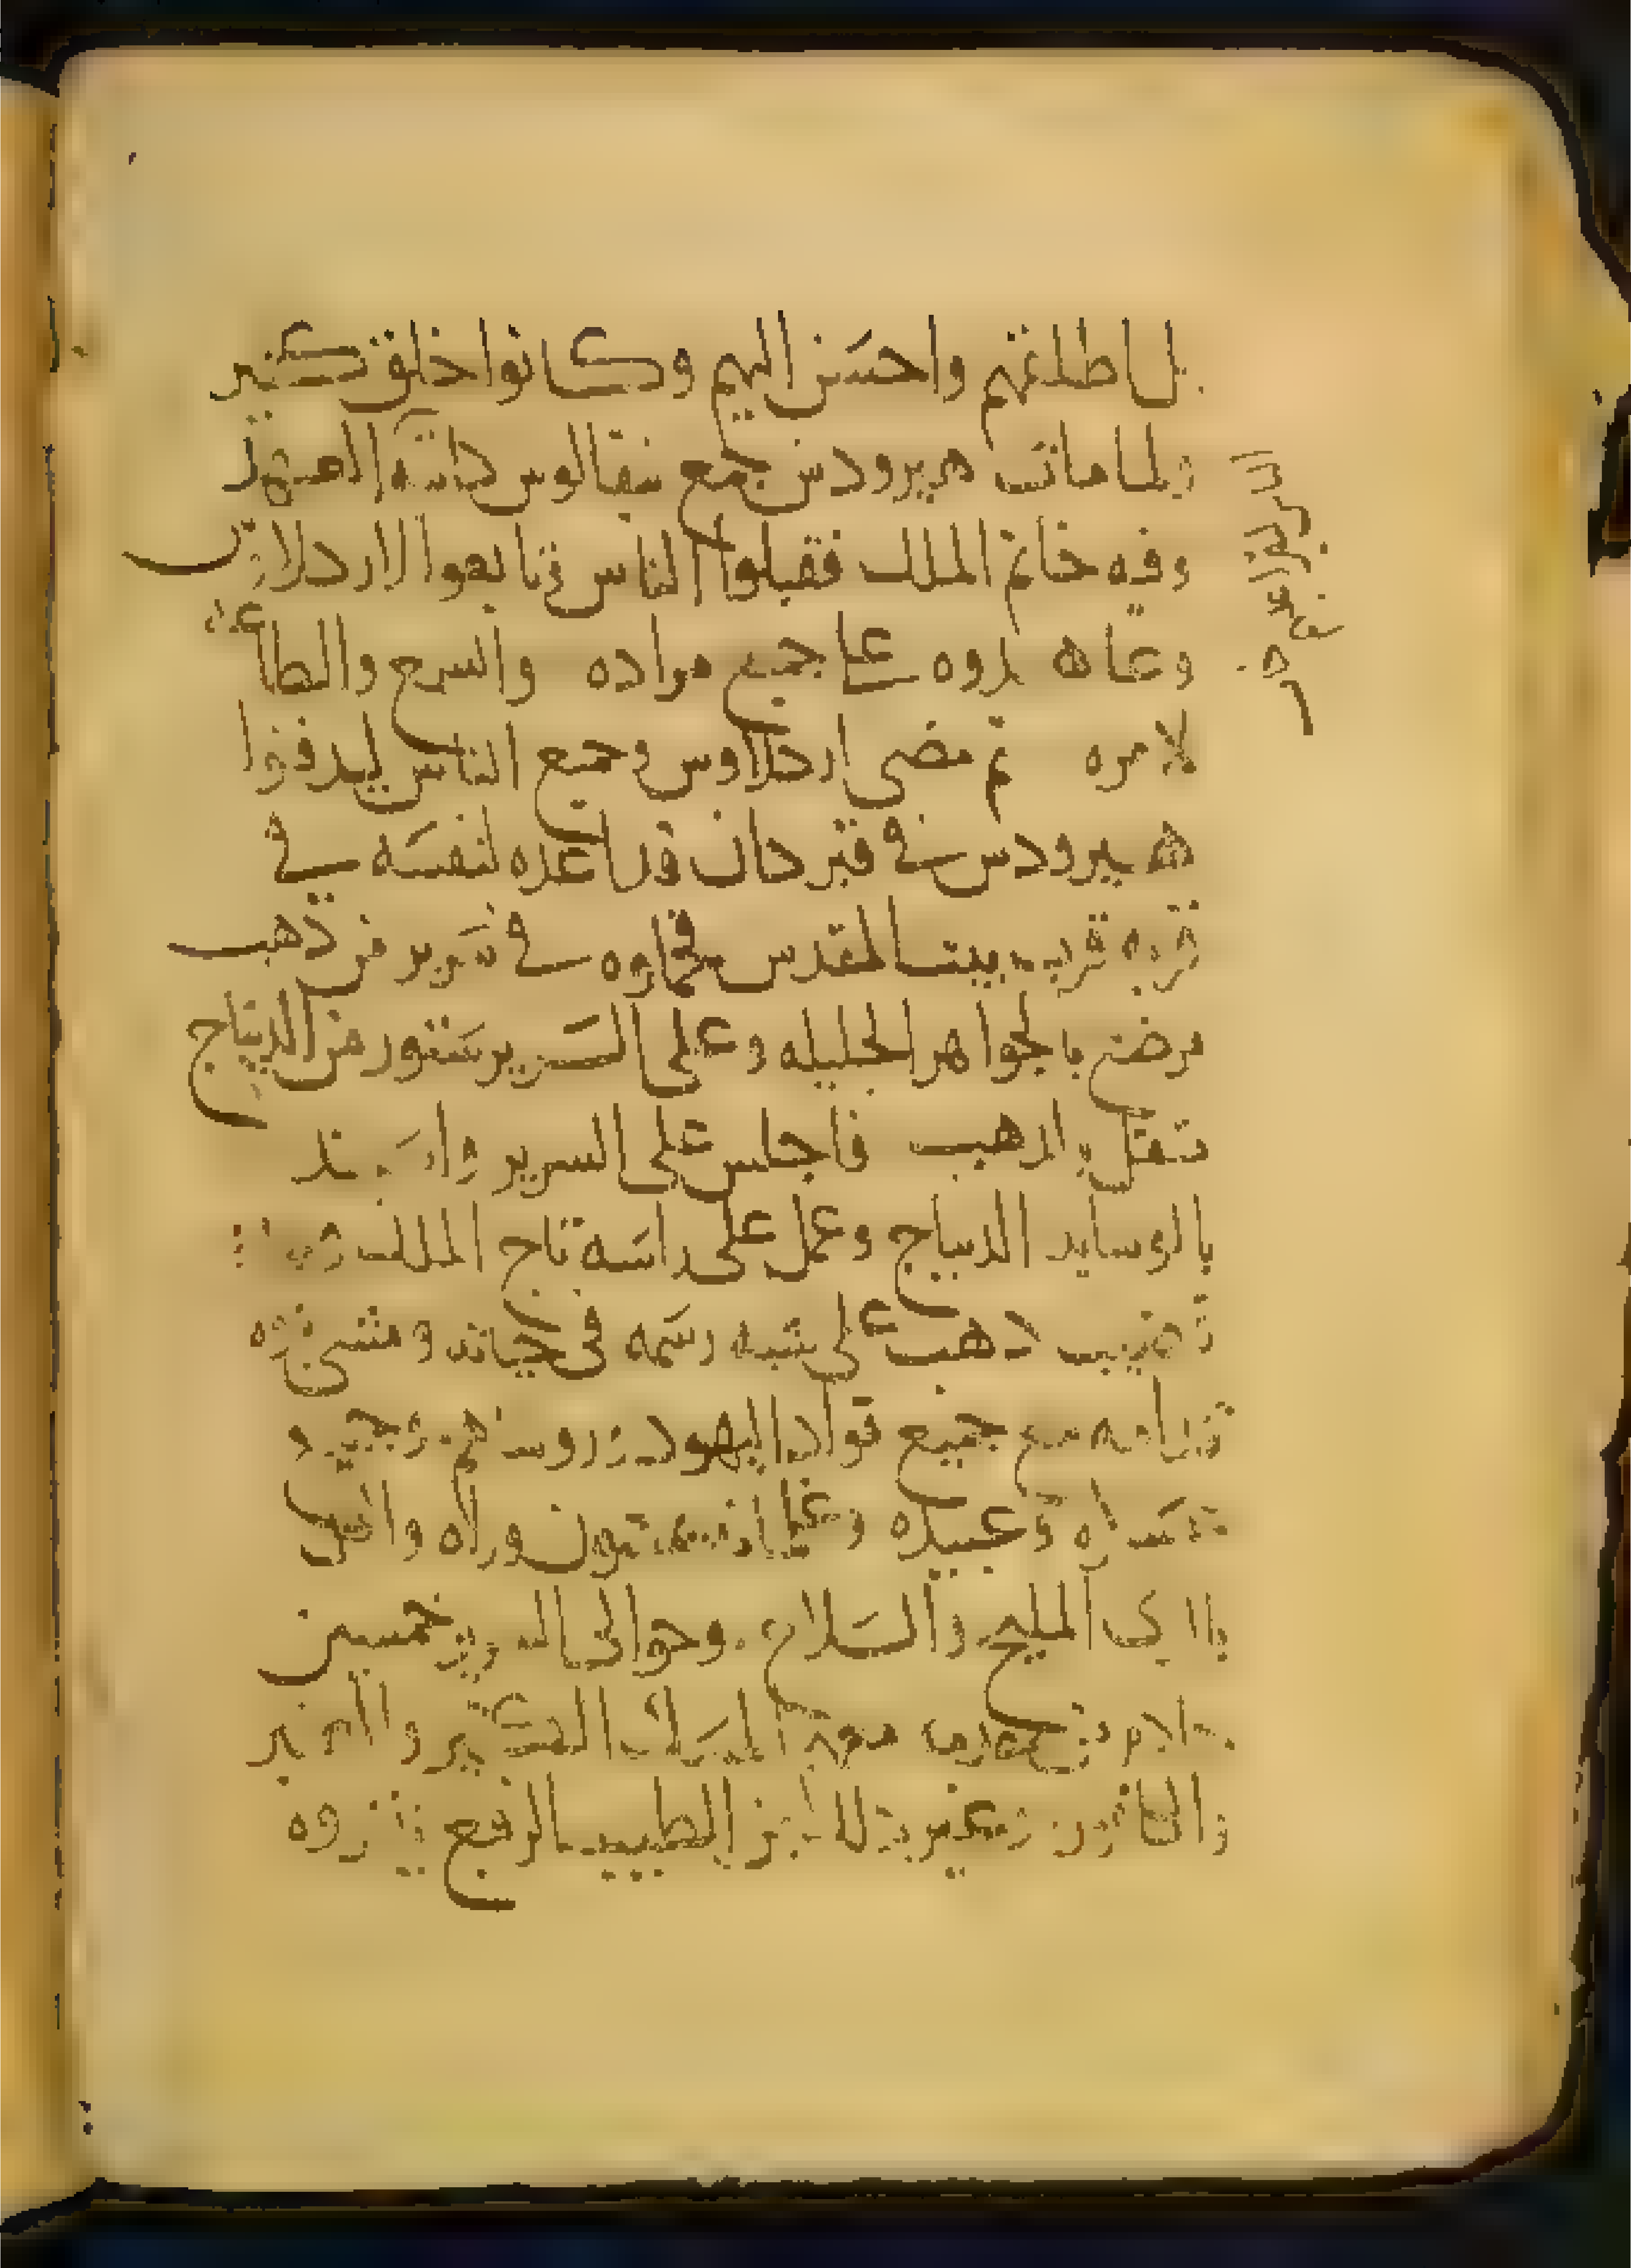 بل اطلقهم واحسن اليهم وكانوا خلق كثير
ولما مات هيرودس جمع نيقالوس كاتبه العسكر
وفيه خاتم الملك فقبلوا الناس وتابعوا لاردلاوس
وعاهدوه على جميع مراده والسمع والطاعة
لامره ثم مضى اردلاوس وجميع الناس ليدفنوا
هيرودس في قبر كان قد اعده لنفسه في
قريه قريب بيت المقدس فحملوه في سرير من ذهب
مرصع بالجواهر الجليله وعلى السرير ستور من الديباج
بالذهب فاجلس على السرير واسند
بالوسايد الديباج وعمل على راسه تاج الملك
قضيب ذهب على شبه رسمه في حياته ومشى
قدامه مع جميع قواد اليهود وروسهم وجميع
وعبيده وغلمانه يمشون وراه
المليح والسلاح وحوالى السرير خمسين
غلام معهم المسك الكثير والعنبر
والكافور وغير ذلك من الطيب الرفيع